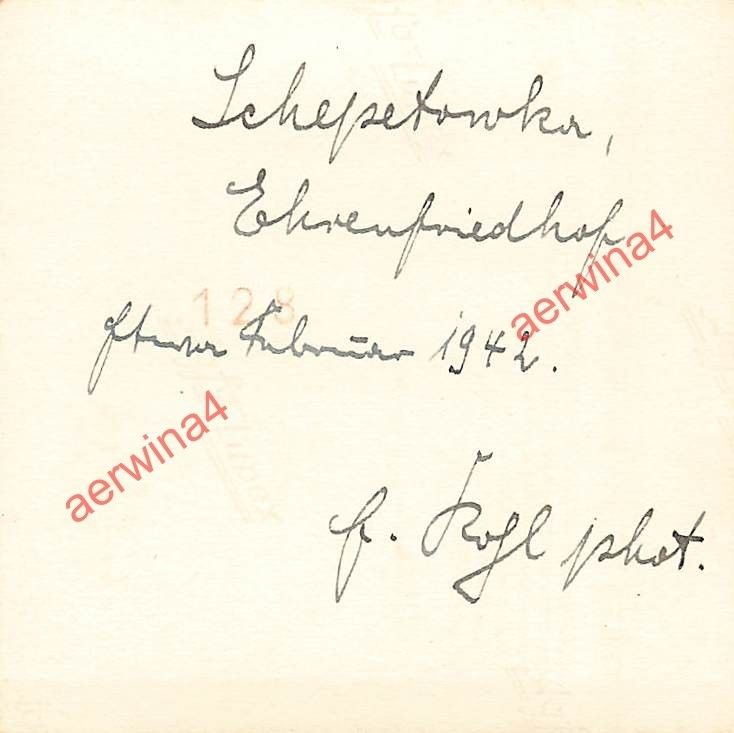 Schepetowka,
Ehrenfriedhof
128
etwa Februar 1942.
aerwina4
aerwina4
f. Kogl phot.